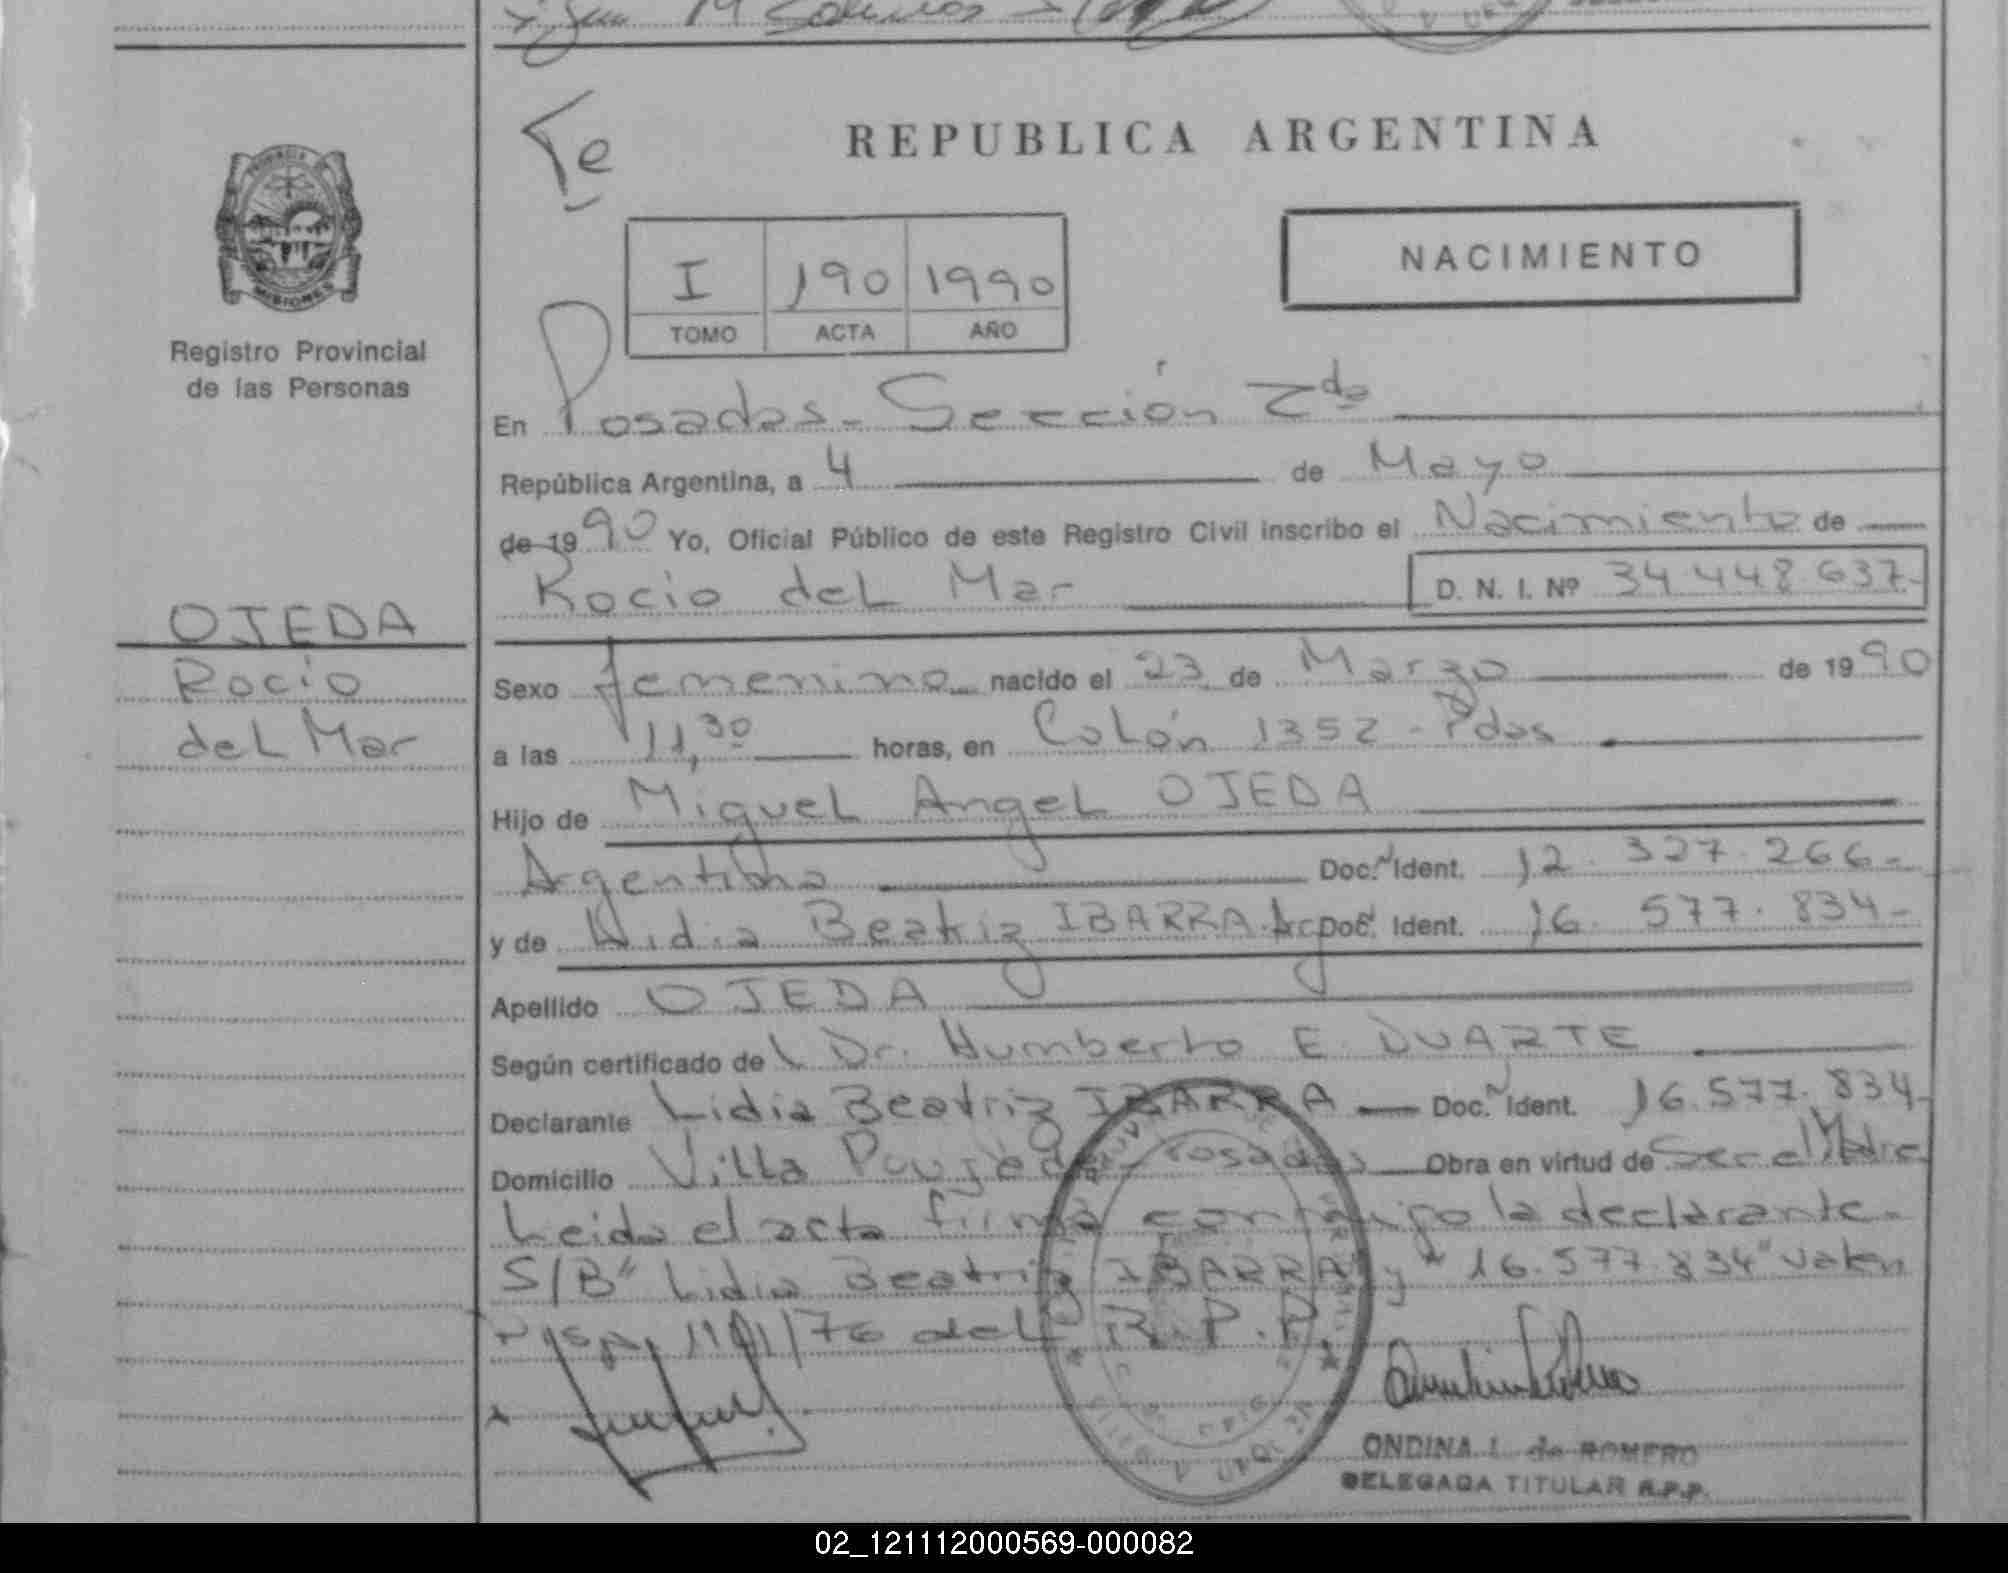 REPUBLICA ARGENTINA
Te
PROVINCIA DE MISIONES
Registro Provincial
de las Personas
I 190 1990
TOMO ACTA AÑO
NACIMIENTO
En Posadas - Sección 2da
República Argentina, a 4 de Mayo
de 1990 Yo, Oficial Público de este Registro Civil inscribo el Nacimiento de
Rocio del Mar D. N. I. Nº 34.448.637-
OJEDA
Rocio
del Mar
Sexo femenino nacido el 23 de Marzo de 1990
a las 11,30 horas, en Colón 1352 - Pdas
Hijo de Miguel Angel OJEDA
Argentino Doc. Ident. 12.327.266-
y de Lidia Beatriz IBARRA Arg Doc. Ident. 16.577.834-
Apellido OJEDA
Según certificado de Dr. Humberto E DUARTE
Declarante Lidia Beatriz IBARRA Doc. Ident. 16.577.834-
Domicilio Villa Poujade - Posadas Obra en virtud de Ser el Madre
Leida el acta firma conmigo la declarante-
S/B "Lidia Beatriz IBARRA" y "16.577.834" valen
Disp. 11/76 del R.P.P.
ONDINA I. de ROMERO
DELEGADA TITULAR R.P.P.
02_121112000569-000082